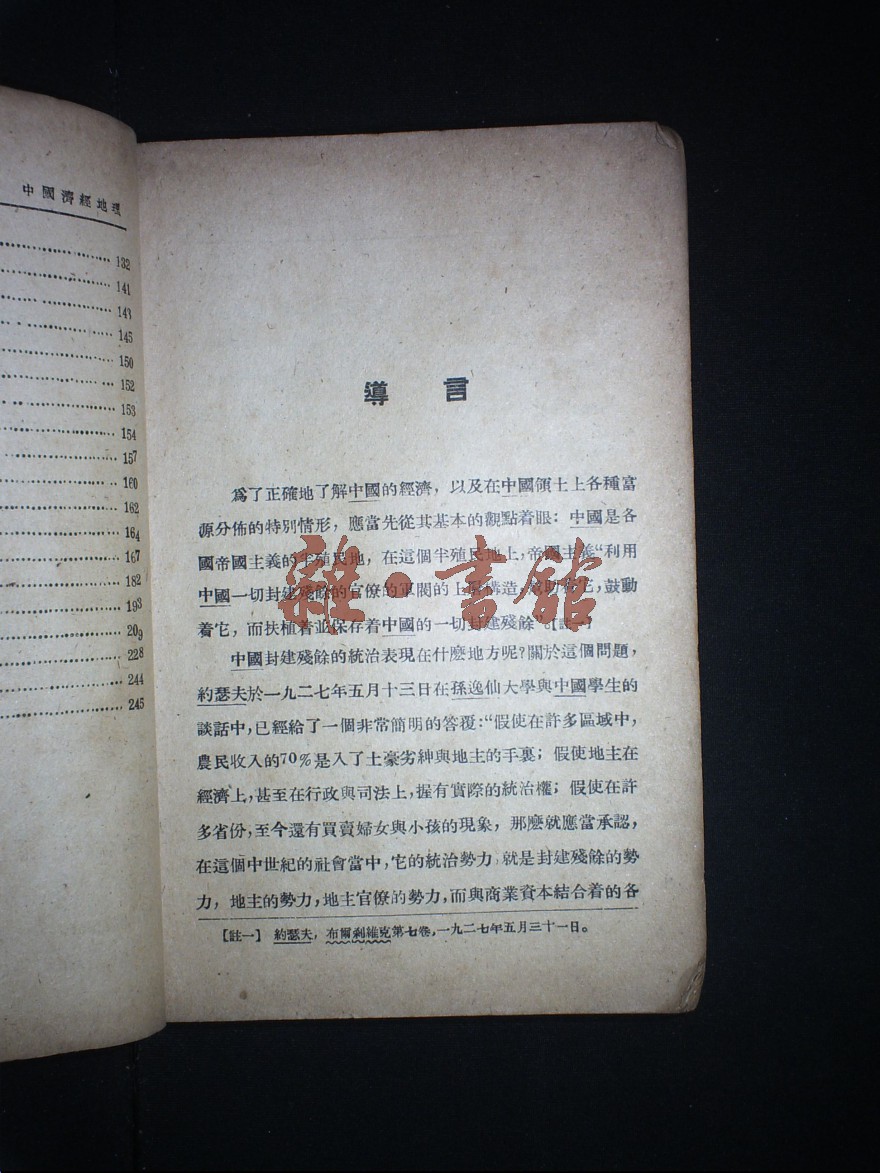 中國濟經地理
132
141
143
145
150
152
153
154
157
160
162
164
167
182
193
209
228
244
245
導言
爲了正確地了解中國的經濟，以及在中國領土上各種富
源分佈的特別情形，應當先從其基本的觀點着眼：中國是各
國帝國主義的半殖民地，在這個半殖民地上，帝國主義“利用
中國一切封建殘餘的官僚的軍閥的上層構造，幫助着它，鼓動
着它，而扶植着並保存着中國的一切封建殘餘。[註一]
中國封建殘餘的統治表現在什麽地方呢？關於這個問題，
約瑟夫於一九二七年五月十三日在孫逸仙大學與中國學生的
談話中，已經給了一個非常簡明的答覆：“假使在許多區域中，
農民收入的70%是入了土豪劣紳與地主的手裏；假使地主在
經濟上，甚至在行政與司法上，握有實際的統治權；假使在許
多省份，至今還有買賣婦女與小孩的現象，那麽就應當承認，
在這個中世紀的社會當中，它的統治勢力，就是封建殘餘的勢
力，地主的勢力，地主官僚的勢力，而與商業資本結合着的各
[註一] 約瑟夫，布爾剩維克第七卷，一九二七年五月三十一日。
雜·書館